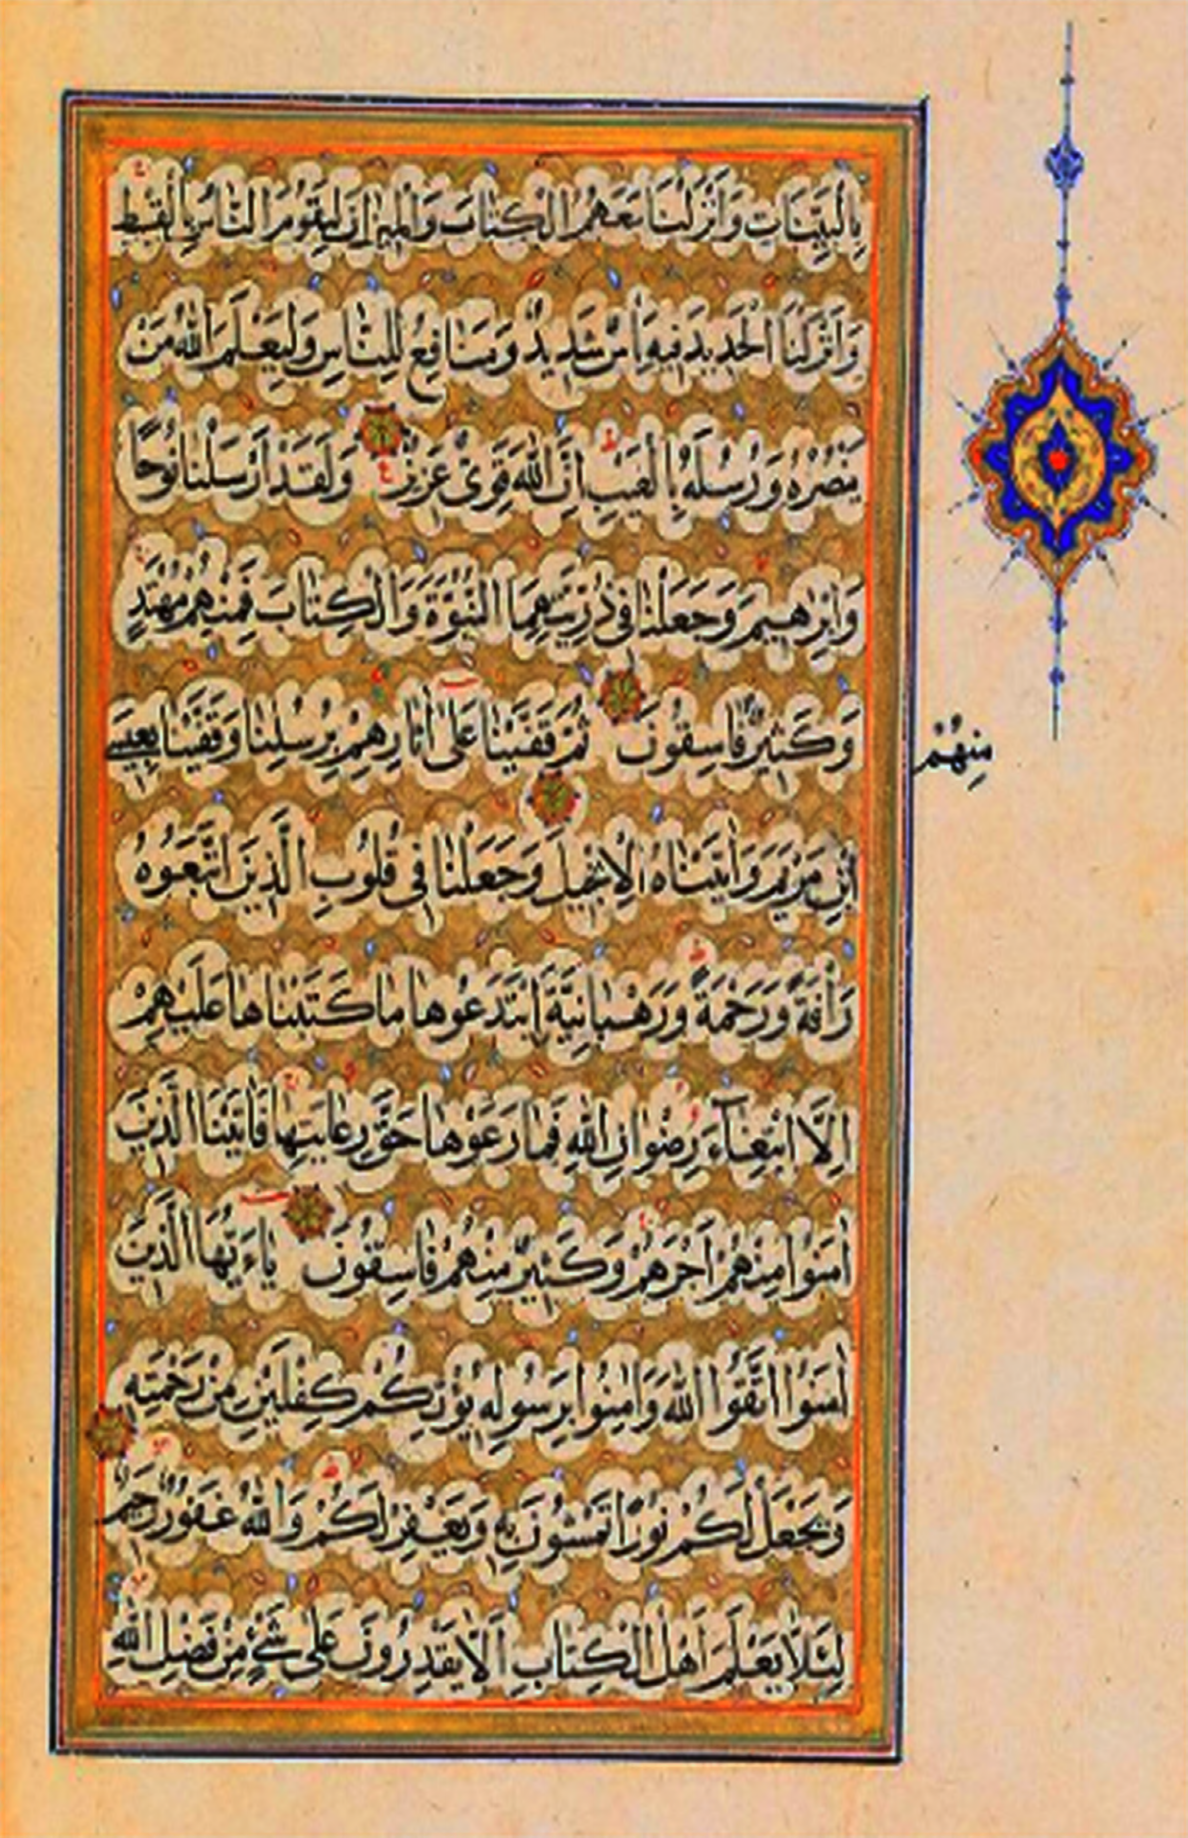 بِالْبَيِّنَاتِ وَاَنْزَلْنَا مَعَهُمُ الْكِتَابَ وَالْمِيزَانَ لِيَقُومَ النَّاسُ بِالْقِسْطِ
وَاَنْزَلْنَا الْحَدِيدَ فِيهِ بَأْسٌ شَدِيدٌ وَمَنَافِعُ لِلنَّاسِ وَلِيَعْلَمَ اللّٰهُ مَنْ
يَنْصُرُهُ وَرُسُلَهُ بِالْغَيْبِ اِنَّ اللّٰهَ قَوِىٌّ عَزِيزٌ وَلَقَدْ اَرْسَلْنَا نُوحًا
وَاِبْرٰهِيمَ وَجَعَلْنَا فِى ذُرِّيَّتِهِمَا النُّبُوَّةَ وَالْكِتَابَ فَمِنْهُمْ مُهْتَدٍ
وَكَثِيرٌ فَاسِقُونَ ثُمَّ قَفَّيْنَا عَلٰى اٰثَارِهِمْ بِرُسُلِنَا وَقَفَّيْنَا بِعِيسَى
مِنْهُمْ
ابْنِ مَرْيَمَ وَاٰتَيْنَاهُ الْاِنْجِيلَ وَجَعَلْنَا فِى قُلُوبِ الَّذِينَ اتَّبَعُوهُ
رَأْفَةً وَرَحْمَةً وَرَهْبَانِيَّةً ابْتَدَعُوهَا مَا كَتَبْنَاهَا عَلَيْهِمْ
اِلَّا ابْتِغَآءَ رِضْوَانِ اللّٰهِ فَمَا رَعَوْهَا حَقَّ رِعَايَتِهَا فَاٰتَيْنَا الَّذِينَ
اٰمَنُوا مِنْهُمْ اَجْرَهُمْ وَكَثِيرٌ مِنْهُمْ فَاسِقُونَ يَاءَيُّهَا الَّذِينَ
اٰمَنُوا اتَّقُوا اللّٰهَ وَاٰمِنُوا بِرَسُولِهِ يُؤْتِكُمْ كِفْلَيْنِ مِنْ رَحْمَتِهِ
وَيَجْعَلْ لَكُمْ نُورًا تَمْشُونَ بِهِ وَيَغْفِرْ لَكُمْ وَاللّٰهُ غَفُورٌ رَحِيمٌ
لِئَلَّا يَعْلَمَ اَهْلُ الْكِتَابِ اَلَّا يَقْدِرُونَ عَلٰى شَىْءٍ مِنْ فَضْلِ اللّٰهِ